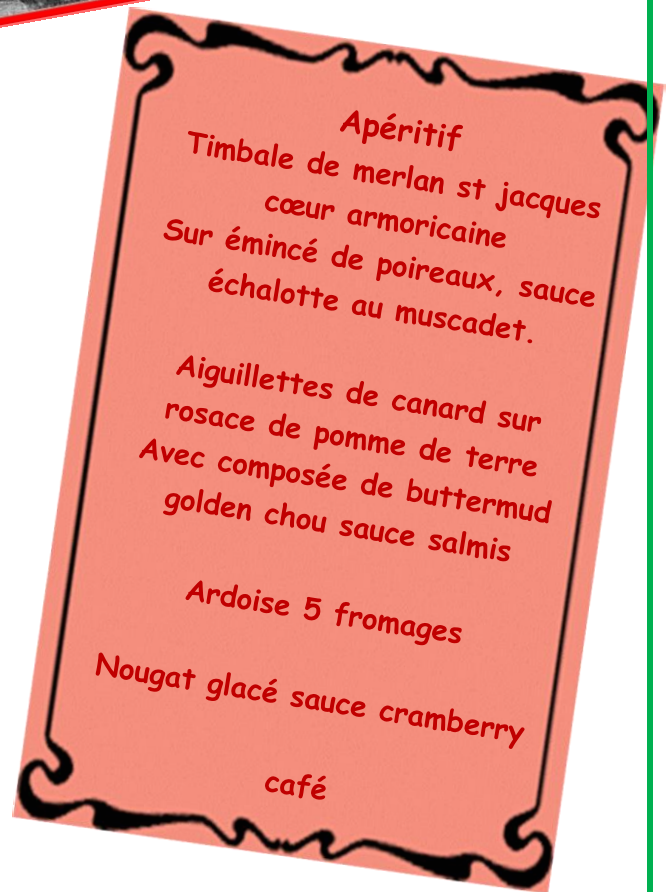 Apéritif
Timbale de merlan st jacques
cœur armoricaine
Sur émincé de poireaux, sauce
échalotte au muscadet.
Aiguillettes de canard sur
rosace de pomme de terre
Avec composée de buttermud
golden chou sauce salmis
Ardoise 5 fromages
Nougat glacé sauce cramberry
café